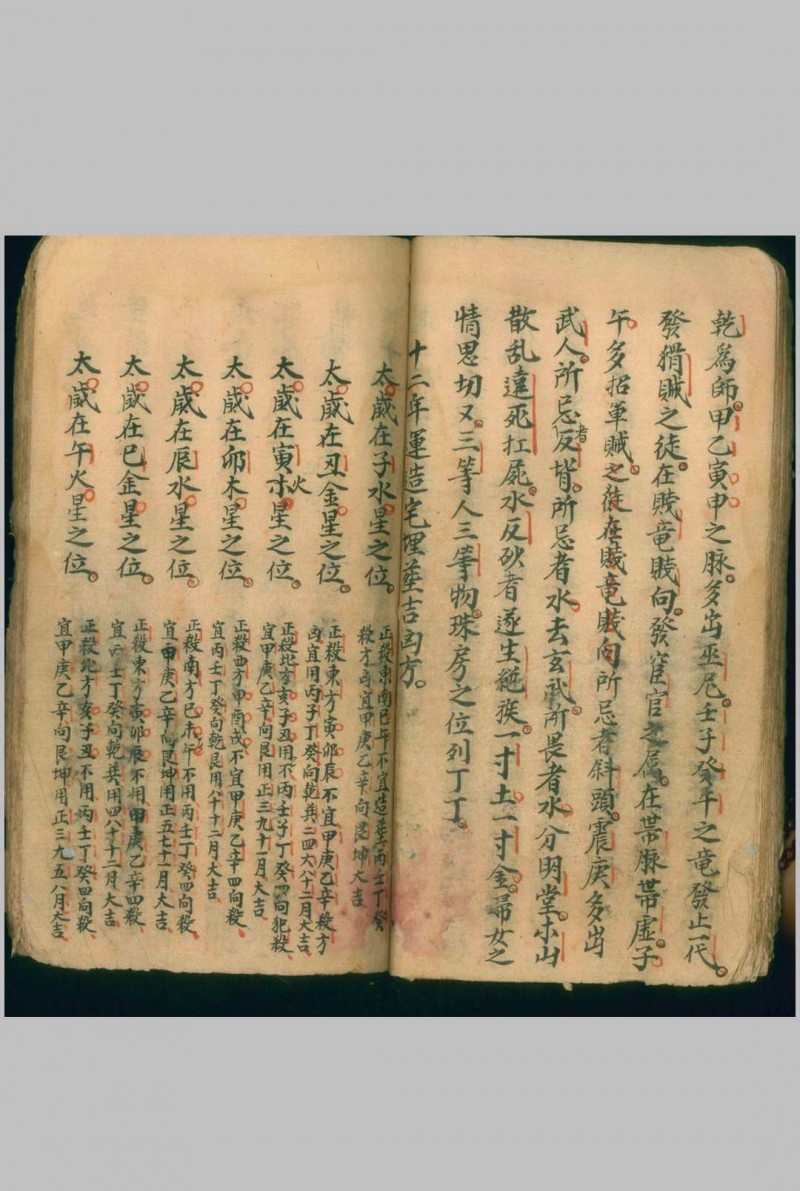 乾爲師甲乙寅申之脉多出巫尼壬子癸午之竜發止一代
發猾賊之徒在賎竜賎向發宦官之属在帯脉帯虚子
午多招軍賊之徒在賎竜賎向所忌者斜頭震庚多出
武人所忌者反背所忌者水去玄武所畏者水分明堂木山
散乱遠死扛屍水反砂者逐生絶疾一寸土一寸金帚女之
情思切又三等人三等物珠房之位列丁丁
十二年運造宅埋塟吉凶方
太歳在子水星之位
正殺東南巳午不宜造塟丙壬丁癸
殺方凶宜甲庚乙辛向艮坤大吉
太歳在丑金星之位
正殺東方寅卯辰不宜甲庚乙辛殺方
凶宜用丙子丁癸向乾巽二四六八十二月大吉
太歳在寅木火星之位
正殺北方亥子丑用不丙壬子丁癸四向犯殺
宜甲庚乙辛向艮用正三九十一月大吉
太歳在卯木星之位
正殺西方申酉戌不宜甲庚乙辛四向殺
宜丙壬丁癸向乾艮用八十十二月大吉
太歳在辰水星之位
正殺南方巳未午不用丙壬丁癸四向殺
宜甲庚乙辛向艮坤用正五七十一月大吉
太歳在巳金星之位
正殺東方寅卯辰不用甲庚乙辛四殺
宜丙壬丁癸向乾巽用四八十十二月大吉
太歳在午火星之位
正殺北方亥子丑不用丙壬丁癸四向殺
宜甲庚乙辛向艮坤用正三九五八月大吉